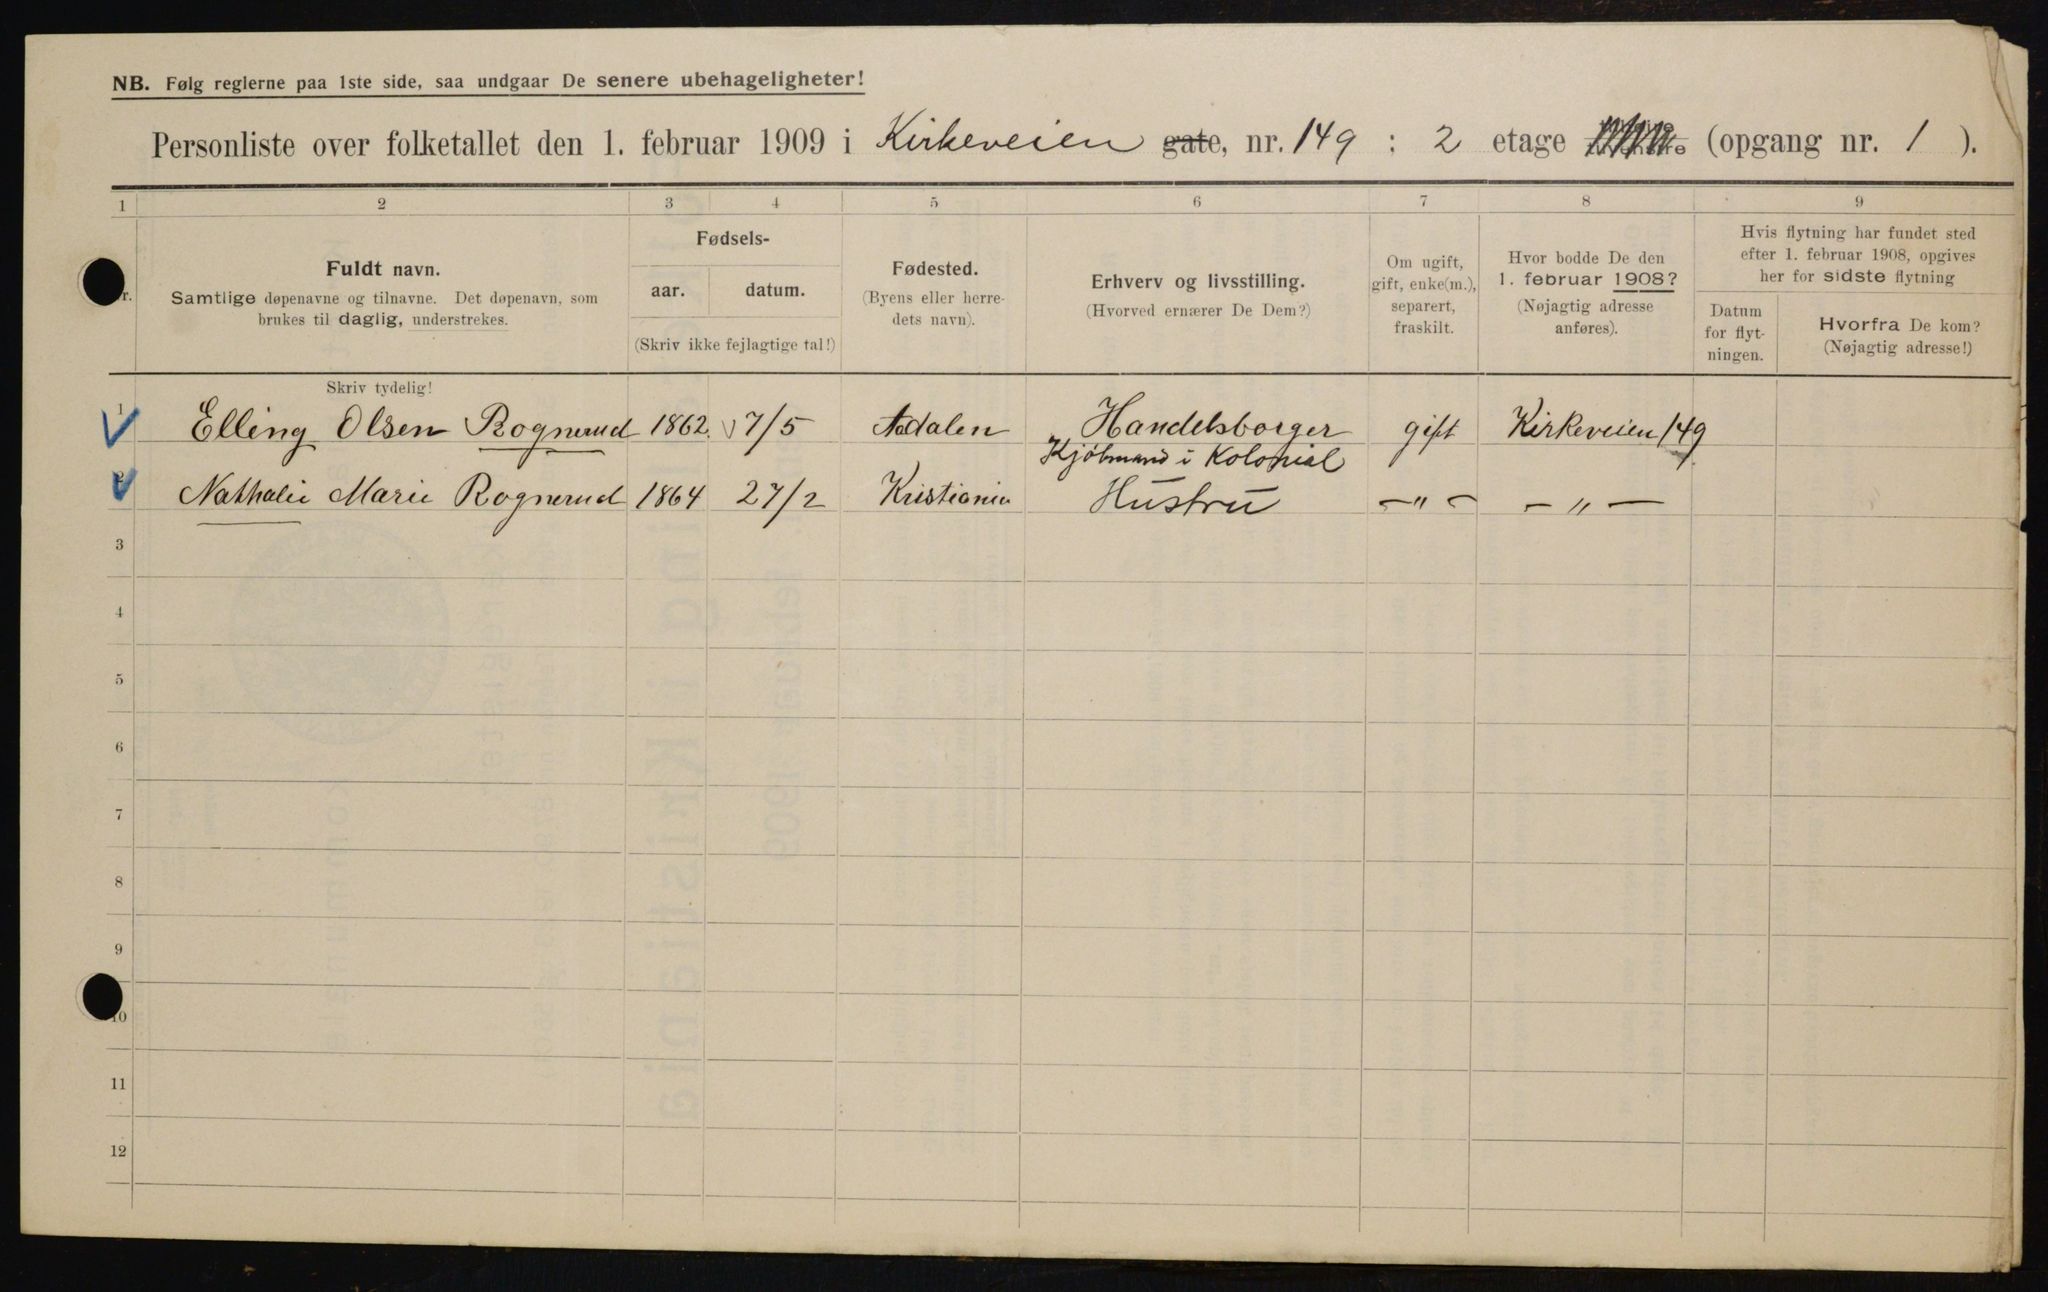 NB. Følg reglerne paa 1ste side, saa undgaar De senere ubehageligheter!
Personliste over folketallet den 1. februar 1909 i Kirkeveien gate, nr. 149 : 2 etage (opgang nr. 1 ).
1 2 3 4 5 6 7 8 9
Fuldt navn.
Samtlige døpenavne og tilnavne. Det døpenavn, som
brukes til daglig, understrekes.
Fødsels-
aar. datum.
(Skriv ikke fejlagtige tal!)
Fødested.
(Byens eller herre-
dets navn).
Erhverv og livsstilling.
(Hvorved ernærer De Dem?)
Om ugift,
gift, enke(m.),
separert,
fraskilt.
Hvor bodde De den
1. februar 1908?
(Nøjagtig adresse
anføres).
Hvis flytning har fundet sted
efter 1. februar 1908, opgives
her for sidste flytning
Datum
for flyt-
ningen.
Hvorfra De kom?
(Nøjagtig adresse!)
Skriv tydelig!
1 Elling Olsen Rognerud 1862 7/5 Aadalen Handelsborger gift Kirkeveien 149
Kjöbmand i Kolonial
2 Nathalie Marie Rognerud 1864 27/2 Kristiania Hustru — " — — " —
3
4
5
6
7
8
9
10
11
12